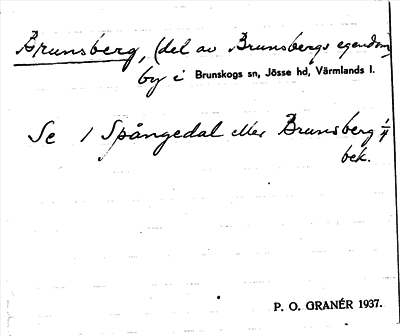 Brunsberg, (del av Brunsbergs egendom)
by i Brunskogs sn, Jösse hd, Värmlands l.
Se 1 Spångedal eller Brunsberg 1/4
bek.
P. O. GRANÉR 1937.